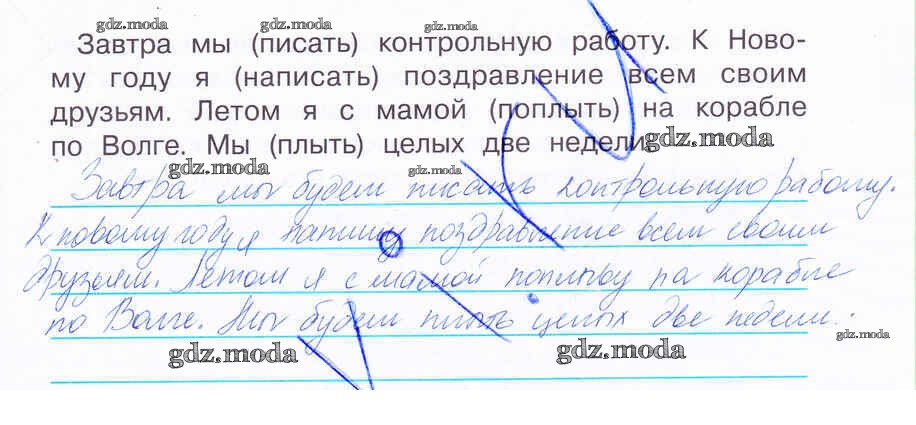 gdz.moda gdz.moda gdz.moda
Завтра мы (писать) контрольную работу. К Ново-
му году я (написать) поздравление всем своим
gdz.moda gdz.moda gdz.moda
друзьям. Летом я с мамой (поплыть) на корабле
по Волге. Мы (плыть) целых две недели.
gdz.moda gdz.moda gdz.moda
Завтра мы будем писать контрольную работу.
К новому году я напишу поздравление всем своим
gdz.moda gdz.moda
друзьям. Летом я с мамой поплыву на корабле
по Волге. Мы будем плыть целых две недели.
gdz.moda gdz.moda gdz.moda